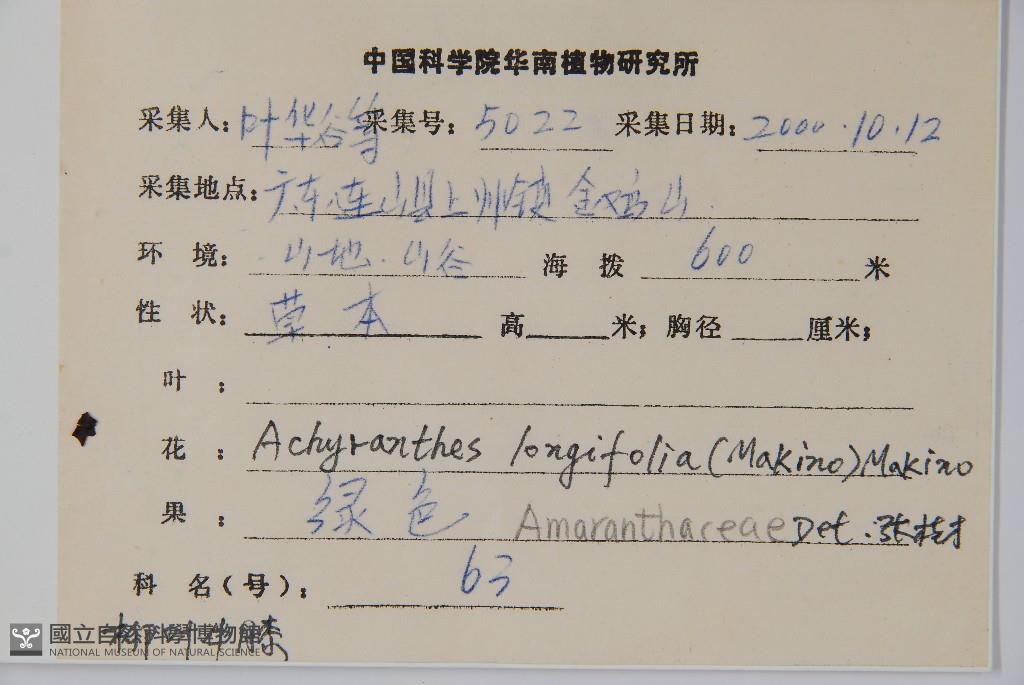 中国科学院华南植物研究所
采集人: 叶华谷等 采集号: 5022 采集日期: 2000.10.12
采集地点: 广东连山县上帅镇金鸡山
环 境: 山地.山谷 海 拨 600 米
性 状: 草本 高 米; 胸径 厘米;
叶 :
花 : Achyranthes longifolia (Makino) Makino
果 : 绿色 Amaranthaceae Det. 张桂才
科 名(号): 63
國立自然科學博物館
NATIONAL MUSEUM OF NATURAL SCIENCE